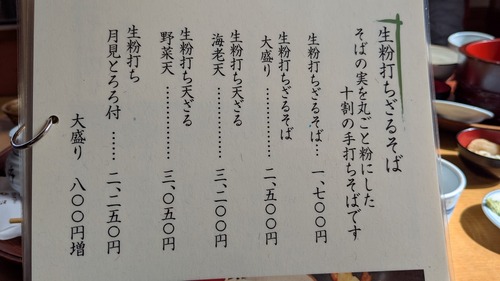 生粉打ちざるそば
そばの実を丸ごと粉にした
十割の手打ちそばです
生粉打ちざるそば… 一、七〇〇円
生粉打ちざるそば
大盛り………… 二、五〇〇円
生粉打ち天ざる
海老天………… 三、二〇〇円
生粉打ち天ざる
野菜天………… 三、〇五〇円
生粉打ち
月見とろろ付…… 二、二五〇円
大盛り 八〇〇円増